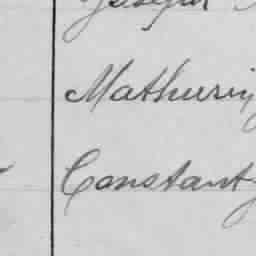 Joseph
Mathurin
Constant